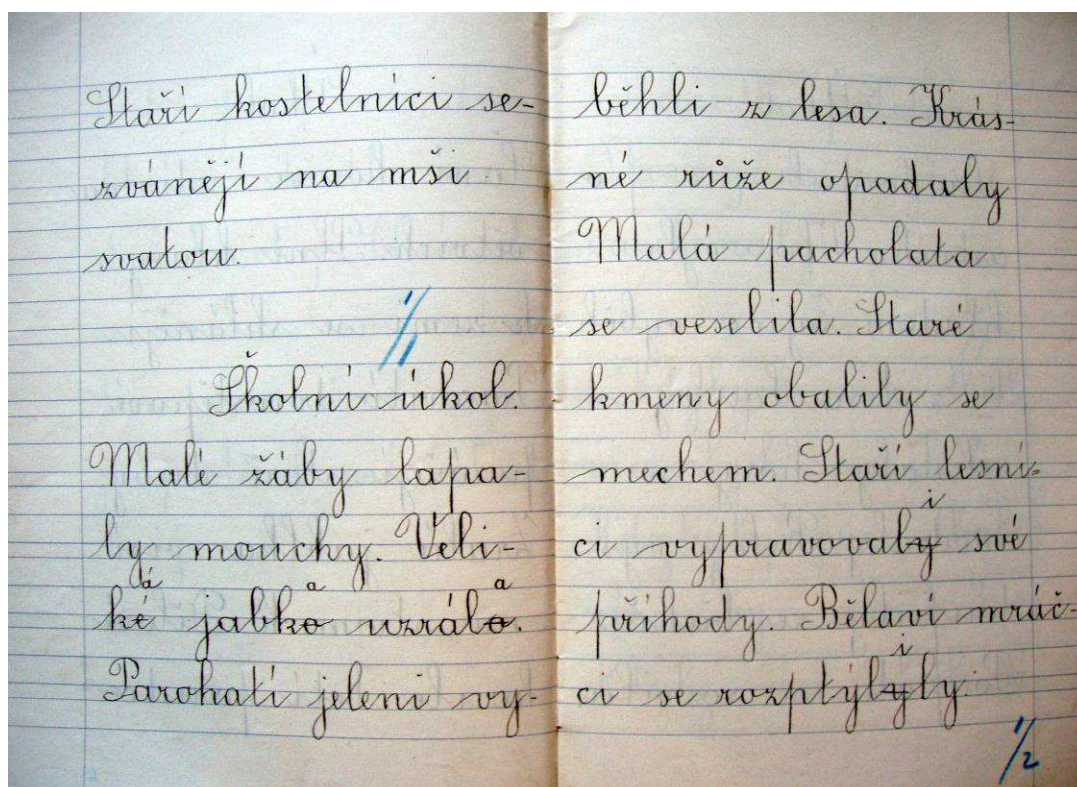 Staří kostelníci se-
zvánějí na mši
svatou.
1/1
Školní úkol.
Malé žáby lapa-
ly mouchy. Veli-
á a a
ké jabko uzrálo.
Parohatí jeleni vy-
běhli z lesa. Krás-
né růže opadaly
Malá pacholata
se veselila. Staré
kmeny obalily se
mechem. Staří lesní-
i
ci vypravovaly své
příhody. Bělaví mráč-
i
ci se rozptýlyly.
1/2